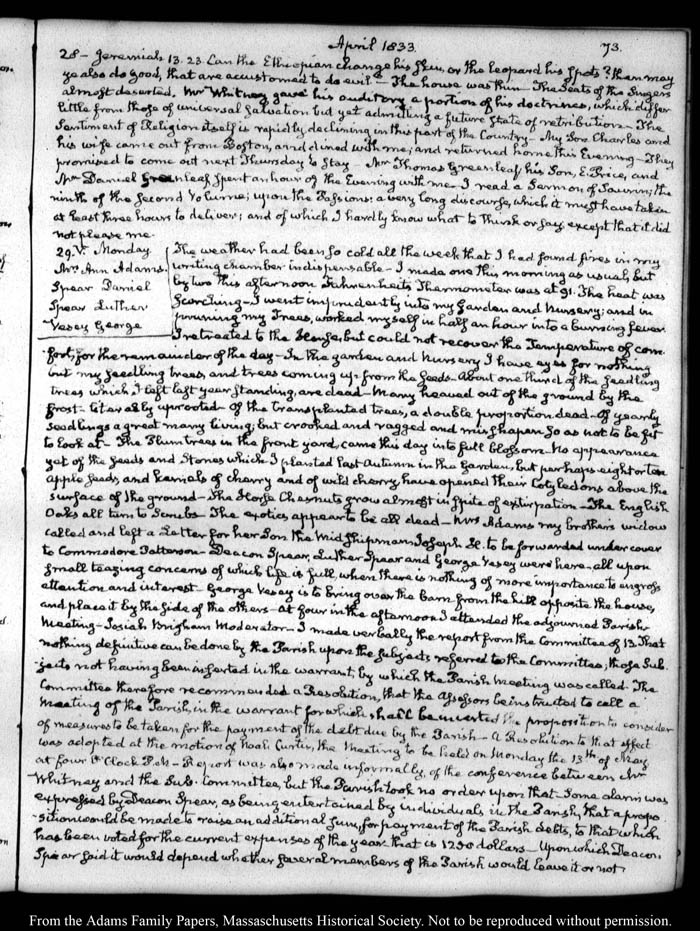 April 1833. 73.
28 – Jeremiah 13. 23. Can the Ethiopian change his Skin, or the Leopard his Spots? then may
ye also do good, that are accustomed to do evil. – The house was thin – The Seats of the Singers
almost deserted. Mr Whitney gave his auditory a portion of his doctrines, which differ
little from those of universal Salvation but yet admitting a future State of retribution – The
Sentiment of Religion itself is rapidly declining in this part of the Country – My Son Charles and
his wife came out from Boston, and dined with me; and returned home this Evening – They
promised to come out next Thursday to Stay – Mr Thomas Greenleaf his Son, E. Price, and
Mr Daniel Greenleaf Spent an hour of the Evening with me – I read a Sermon of Saurin; the
ninth of the Second Volume; upon the Passions: a very long discourse, which it must have taken
at least three hours to deliver; and of which I hardly know what to think or say, except that it did
not please me.
29. V. Monday
Mrs Ann Adams.
Spear Daniel
Spear Luther
Vesey George
The weather had been so cold all the week that I had found fires in my
writing chamber indispensable – I made one this morning as usual, but
by two this afternoon Fahrenheit's Thermometer was at 91. The heat was
Scorching – I went imprudently into my Garden and Nursery; and in
pruning my Trees, worked myself in half an hour into a burning fever
I retreated to the House, but could not recover the Temperature of com-
fort, for the remainder of the day – In the garden and Nursery I have eyes for nothing
but my Seedling trees, and trees coming up from the Seeds – About one third of the Seedling
trees which I left last year standing, are dead – Many heaved out of the ground by the
frost – literally uprooted – Of the transplanted trees, a double proportion dead – Of yearly
Seedlings a great many living; but crooked and ragged and misshapen so as not to be fit
to look at – The Plum trees in the front yard, came this day into full blossom – No appearance
yet of the Seeds and Stones which I planted last Autumn in the Garden, but perhaps eight or ten
apple Seeds, and kernels of cherry and of wild cherry, have opened their Cotyledons above the
surface of the ground – The Horse Chesnuts grow almost in Spite of extirpation – The English
Oaks all turn to Scrubs – The exotics appear to be all dead – Mrs Adams my brother's widow
called and left a Letter for her Son the Midshipman Joseph H. to be forwarded under cover
to Commodore Patterson – Deacon Spear, Luther Spear and George Vesey were here – all upon
Small teazing concerns of which life is full, when there is nothing of more importance to engross
attention and interest – George Vesey is to bring over the barn from the hill opposite the house,
and place it by the side of the others – At four in the afternoon I attended the adjourned Parish
Meeting – Josiah Brigham Moderator – I made verbally the report from the Committee of 13. That
nothing definitive can be done by the Parish upon the Subjects referred to the Committee; those Sub-
-jects not having been inserted in the warrant, by which the Parish Meeting was called – The
Committee therefore recommended a Resolution, that the Assessors be instructed to call a
Meeting of the Parish, in the warrant for which shall be inserted the proposition to consider
of measures to be taken for the payment of the debt due by the Parish – A Resolution to that effect
was adopted at the motion of Noah Curtis, the Meeting to be held on Monday the 13th of May
at four O'Clock P.M. – Report was also made informally, of the conference between Mr
Whitney and the Sub-Committee, but the Parish took no order upon that – Some alarm was
expressed by Deacon Spear, as being entertained by individuals in the Parish, that a propo-
-sition would be made to raise an additional Sum, for payment of the Parish debts, to that which
has been voted for the current expenses of the year that is 1250 dollars – Upon which Deacon
Spear said it would depend whether several members of the Parish would leave it or not
From the Adams Family Papers, Massachusetts Historical Society. Not to be reproduced without permission.